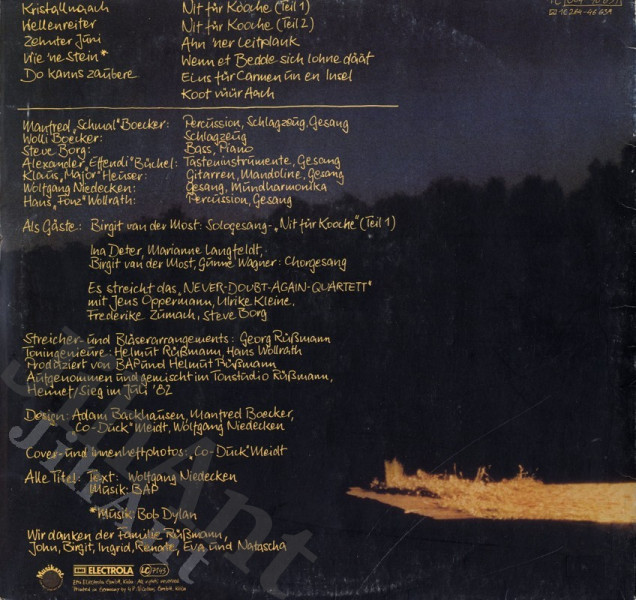 Kristallnaach Nit für Kooche (Teil 1)
Hellenreiter Nit für Kooche (Teil 2)
Zehnter Juni Ahn 'ner Leitplank
Wie 'ne Stein* Wenn et Bedde sich lohne däät
Do kanns zaubere Eins für Carmen un en Insel
Koot vüür Aach
Manfred „Schmal" Boecker: Percussion, Schlagzeug, Gesang
Wolli Boecker: Schlagzeug
Steve Borg: Bass, Piano
Alexander „Effendi" Büchel: Tasteninstrumente, Gesang
Klaus „Major" Heuser: Gitarren, Mandoline, Gesang
Wolfgang Niedecken: Gesang, Mundharmonika
Hans „Fonz" Wollrath: Percussion, Gesang
Als Gäste: Birgit van der Most: Sologesang-„Nit für Kooche" (Teil 1)
Ina Deter, Marianne Langfeldt,
Birgit van der Most, Günne Wagner: Chorgesang
Es streicht das „NEVER-DOUBT-AGAIN-QUARTETT"
mit Jens Oppermann, Ulrike Kleine,
Frederike Zumach, Steve Borg
Streicher- und Bläserarrangements: Georg Rüßmann
Toningenieure: Helmut Rüßmann, Hans Wollrath
Produziert von BAP und Helmut Rüßmann
Aufgenommen und gemischt im Tonstudio Rüßmann,
Hennef/Sieg im Juli '82
Design: Adam Backhausen, Manfred Boecker,
„Co-Duck" Meidt, Wolfgang Niedecken
Cover- und Innenheftphotos: „Co-Duck" Meidt
Alle Titel: Text: Wolfgang Niedecken
Musik: BAP
*Musik: Bob Dylan
Wir danken der Familie Rüßmann,
John, Birgit, Ingrid, Renate, Eva und Natascha
Musikant EMI ELECTROLA LC 7145
EMI Electrola GmbH, Köln · All rights reserved
Printed in Germany by
JiHAnt
JiHAnt